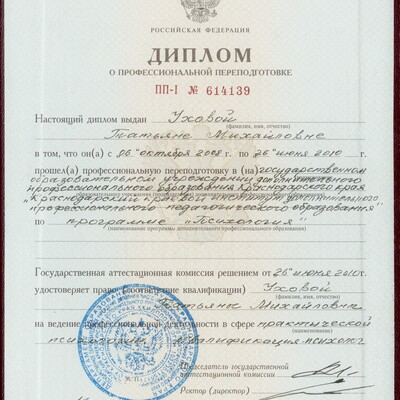 РОССИЙСКАЯ ФЕДЕРАЦИЯ
ДИПЛОМ
О ПРОФЕССИОНАЛЬНОЙ ПЕРЕПОДГОТОВКЕ
ПП-I № 614139
Настоящий диплом выдан Уховой
(фамилия, имя, отчество)
Татьяне Михайловне
в том, что он(а) с 06 октября 2008 г. по 26 июня 2010 г.
прошел(а) профессиональную переподготовку в (на) государственном
образовательном учреждении дополнительного
профессионального образования Краснодарского края
"Краснодарский краевой институт дополнительного
профессионального педагогического образования"
по программе "Психология"
(наименование программы дополнительного профессионального образования)
Государственная аттестационная комиссия решением от 26 июня 2010 г.
удостоверяет право (соответствие квалификации) Уховой
(фамилия, имя, отчество)
Татьяны Михайловны
на ведение профессиональной деятельности в сфере практической
психологии, квалификация психолог
Председатель государственной
аттестационной комиссии
Ректор (директор)
М.П.